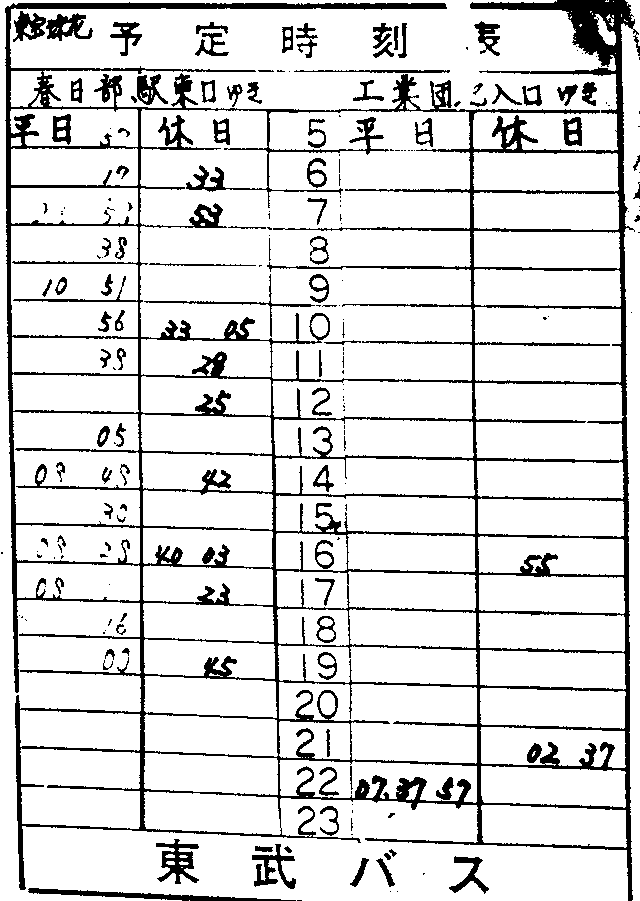 予定時刻表
春日部駅東口ゆき 工業団 入口 ゆき
平日 休日 5 平日 休日
17 33 6
53 7
38 8
10 51 9
56 33 05 10
39 28 11
25 12
05 13
08 48 42 14
30 15
08 28 40 03 16 55
08 23 17
16 18
45 19
20
21 02 37
22 07.37 57
23
東武バス